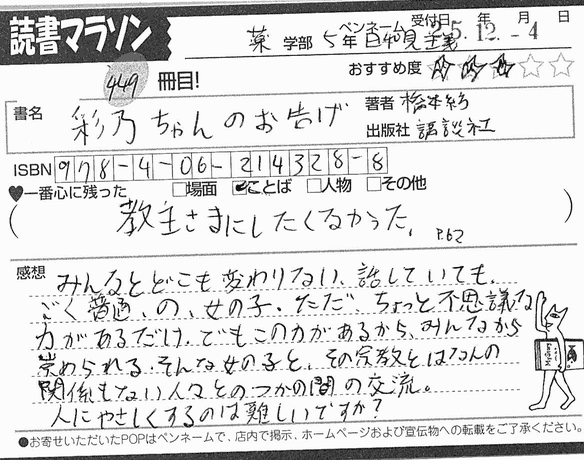 読書マラソン
薬 学部 5年 ペンネーム 日和見主義 受付日 年 月 日
25.12.-4
449 冊目!
おすすめ度 ★★★☆☆
書名 彩乃ちゃんのお告げ
著者 橋本紡
出版社 講談社
ISBN 978-4-06-214328-8
♥一番心に残った □場面 ☑ことば □人物 □その他
(教主さまにしたくなかった。 P.62)
感想 みんなとどこも変わりない、話していても、
ごく普通、の、女の子。ただ、ちょっと不思議な
力があるだけ。でもこの力があるから、みんなから
崇められる。そんな女の子と、その宗教とはなんの
関係もない人々とのつかの間の交流。
人にやさしくするのは難しいですか?
●お寄せいただいたPOPはペンネームで、店内で掲示、ホームページおよび宣伝物への転載をご了承ください。